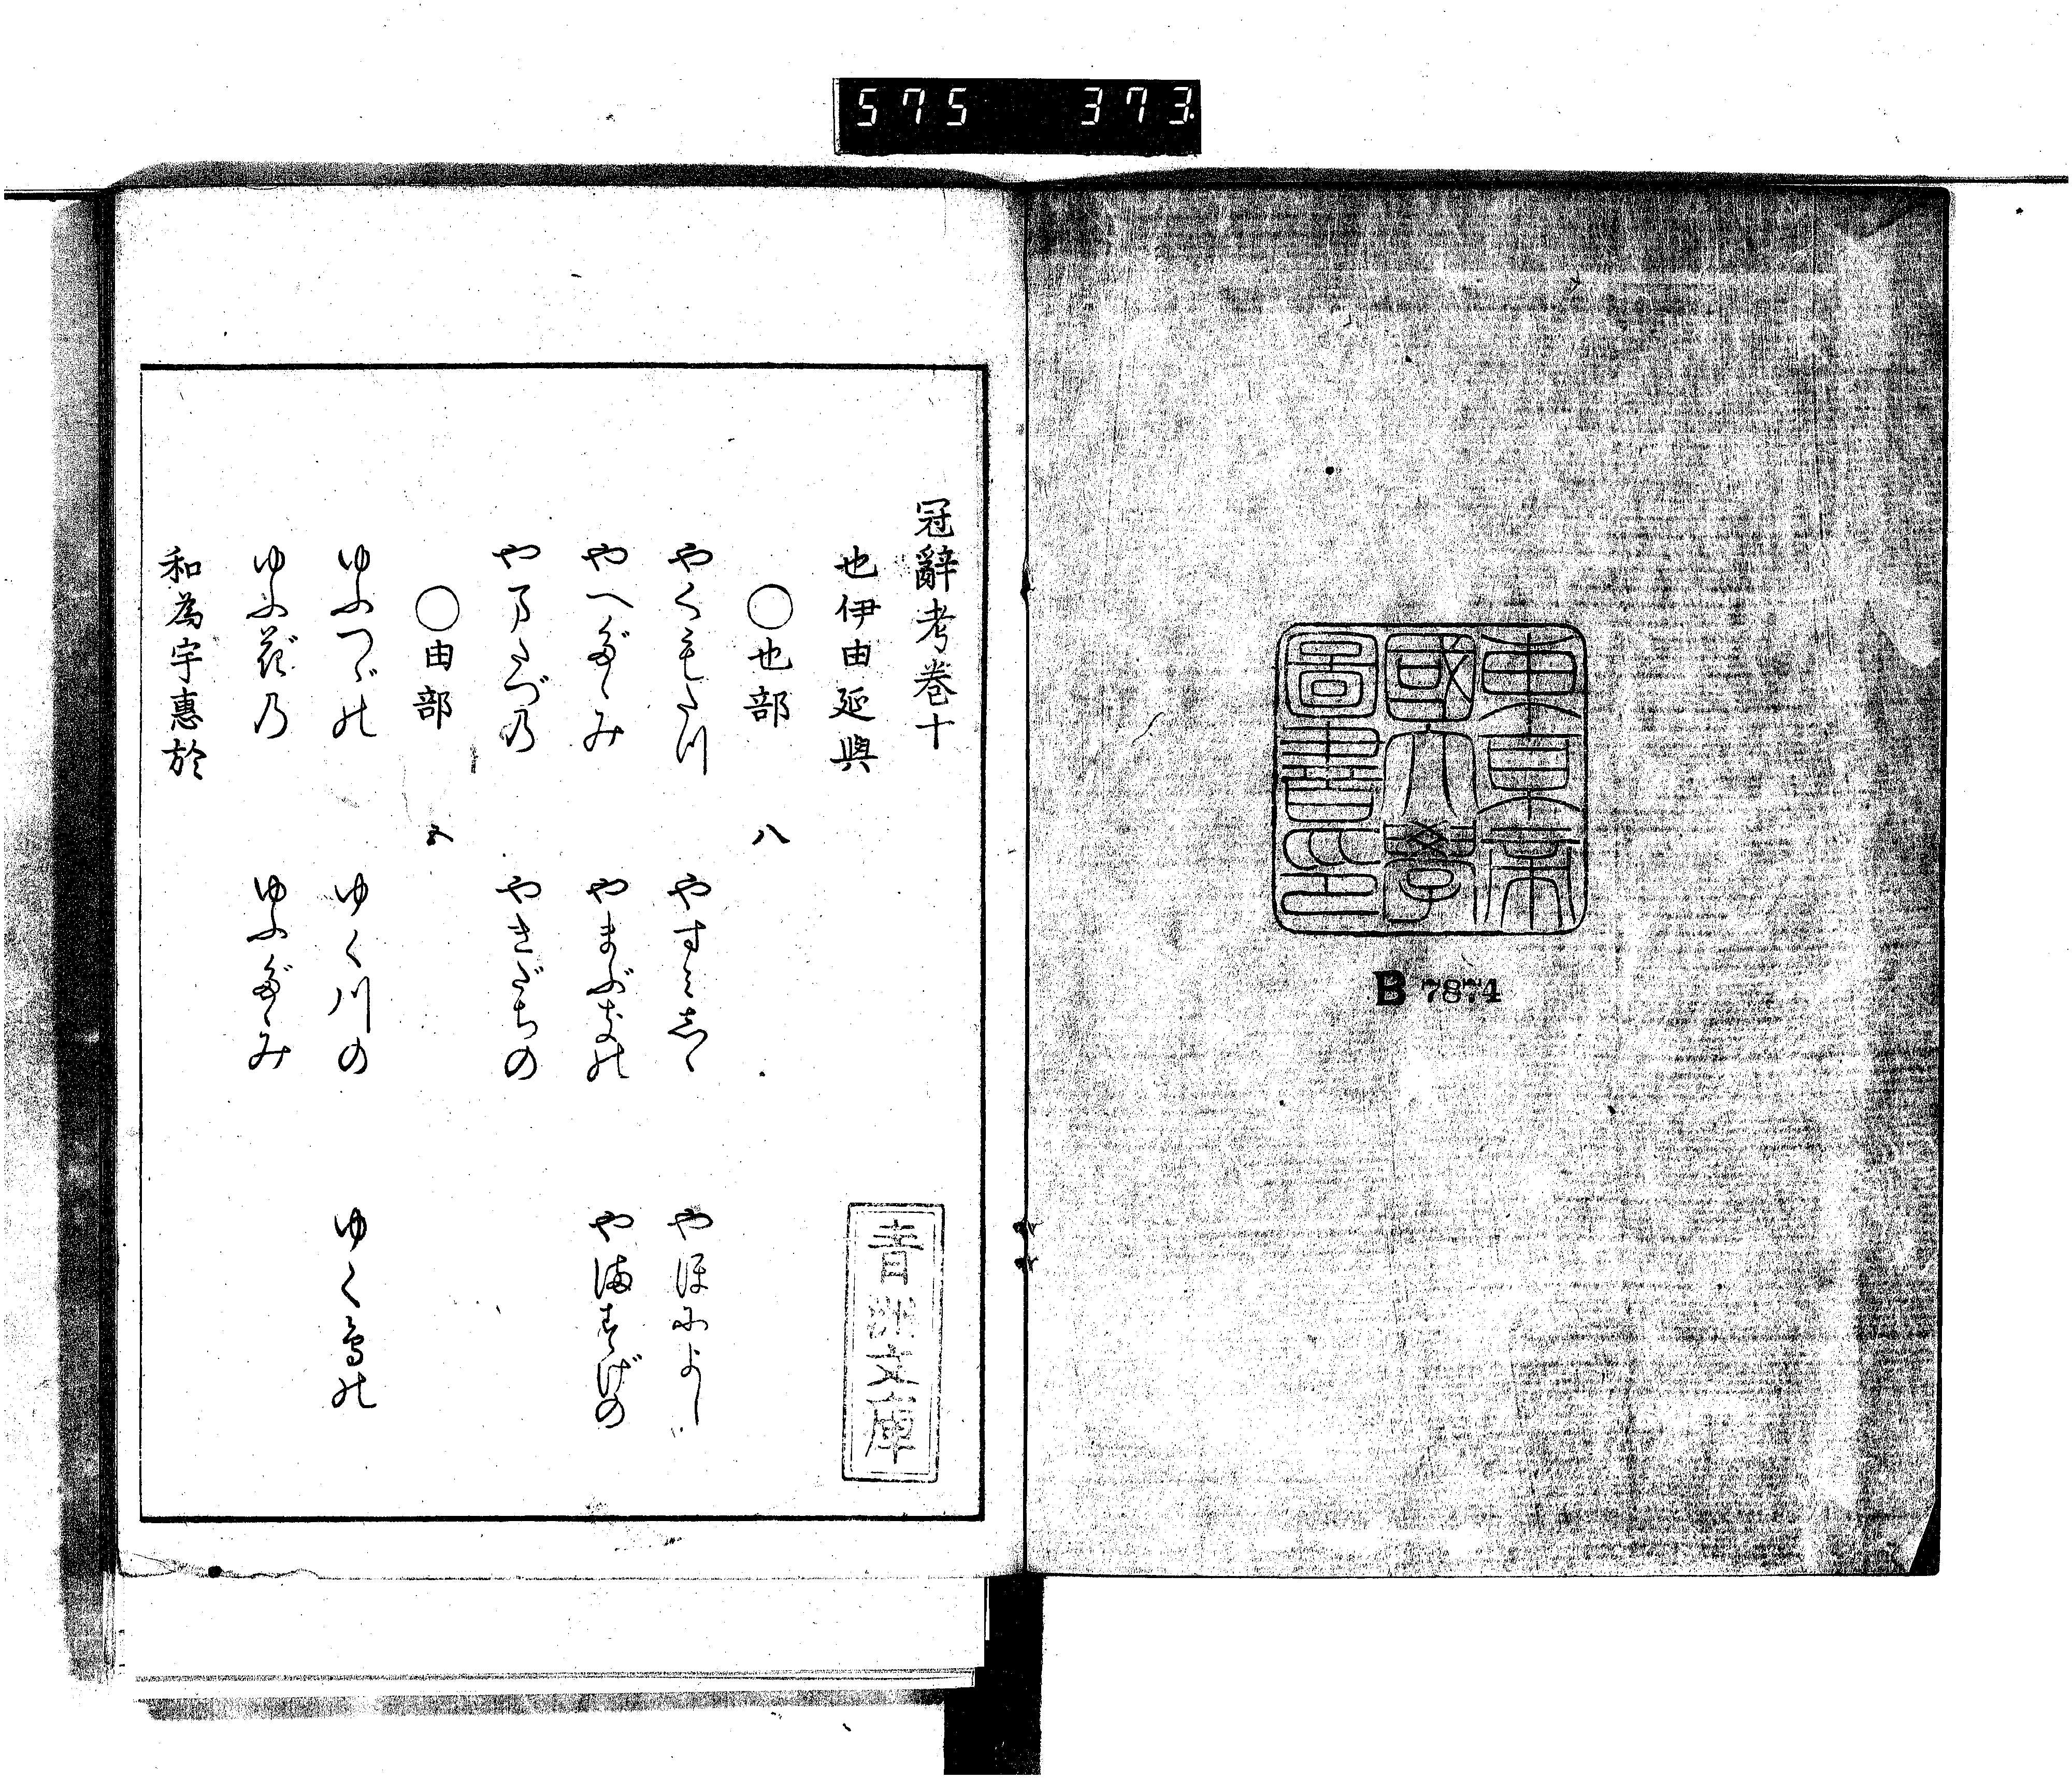 575 373
東京帝
國大學
圖書印
B 7874
冠辭考卷十
也伊由延與
○也部 八
やくもたつ やすみしゝ やほによし
やへだゝみ やまぶきの やますげの
やまたづの やきだちの
○由部 五
ゆふつゞの ゆく川の ゆく鳥の
ゆふ花の ゆふだゝみ
和為宇惠於
青洲文庫